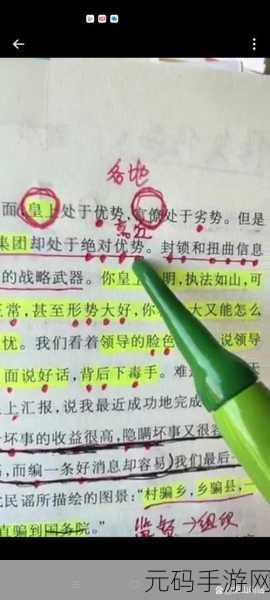 各地
面,皇上处于优势,官僚处于劣势。但是
集团却处于绝对优势。封锁和扭曲信息
的战略武器。你皇上 明,执法如山,可
正常,甚至形势大好,你 大又能怎么
忧。我们看着领导的脸色 说领导
面说好话,背后下毒手。难
上汇报,说我最近成功地完成
坏事的收益很高,隐瞒坏事又很容
而编一条好消息却容易)我们最后
民谣所描绘的图景:“村骗乡,乡骗县,一
直骗到国务院。”
监督→组织